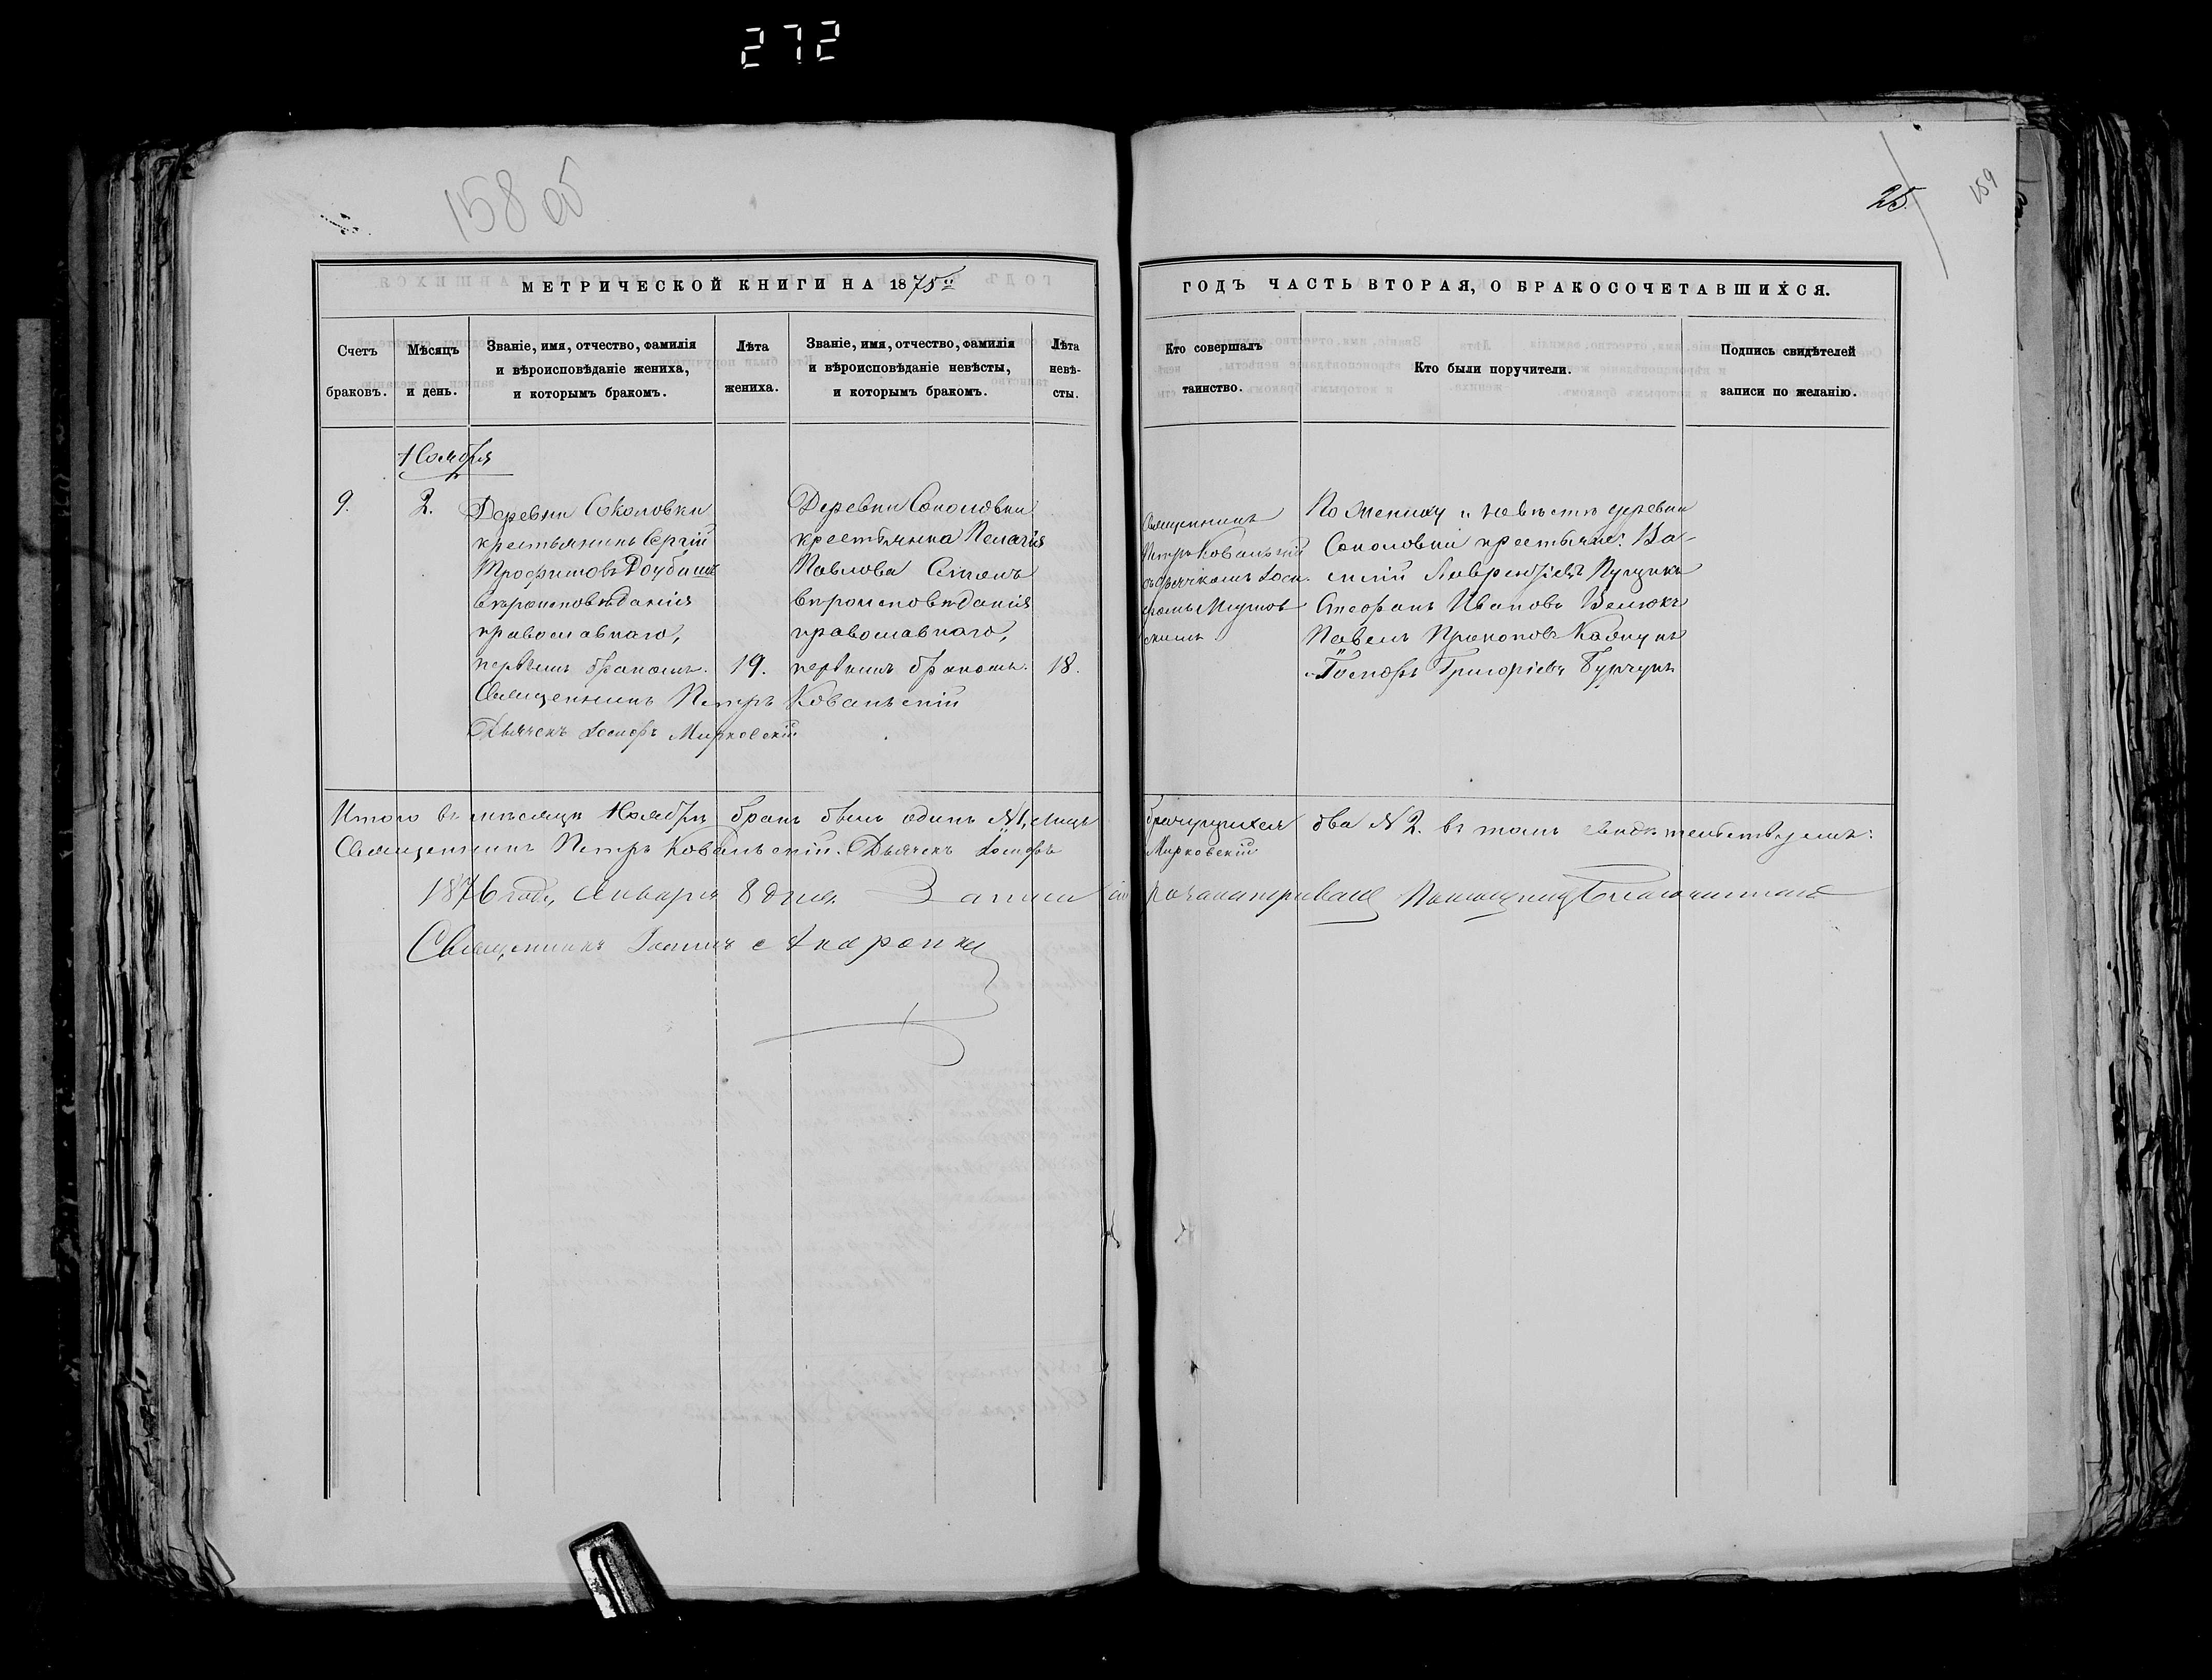 272
158 об
25
159
МЕТРИЧЕСКОЙ КНИГИ НА 1875й
ГОДЪ ЧАСТЬ ВТОРАЯ, О БРАКОСОЧЕТАВШИХСЯ.
Счетъ
браковъ.
Мѣсяцъ
и день.
Званіе, имя, отчество, фамилія
и вѣроисповѣданіе жениха,
и которымъ бракомъ.
Лѣта
жениха.
Званіе, имя, отчество, фамилія
и вѣроисповѣданіе невѣсты,
и которымъ бракомъ.
Лѣта
невѣ-
сты.
Кто совершалъ
таинство.
Кто были поручители.
Подпись свидѣтелей
записи по желанію.
Ноября
9.
2.
Деревни Соколовки
крестьянинъ Сергій
Трофимовъ
вѣроисповѣданія
православнаго,
первымъ бракомъ.
19.
Деревни Соколовки
крестьянка Пелагія
Павлова
вѣроисповѣданія
православнаго,
первымъ бракомъ.
18.
Священникъ
Петръ Ковальскій
съ дьячкомъ Іоси-
фомъ
По жениху и невѣстѣ деревни
Соколовки крестьяне: Ва-
силій Лаврентіевъ
Стефанъ Ивановъ Велюкъ
Павелъ Прокоповъ
и Іосифъ Григоріевъ
Священникъ Петръ Ковальскій
Дьячекъ Іосифъ Мирковскій
Итого въ мѣсяцѣ Ноябрѣ бракъ былъ одинъ №1, лицъ
брачущихся два №2. въ томъ свидѣтельствуемъ:
Священникъ Петръ Ковальскій. Дьячекъ Іосифъ
Мирковскій
1876 года, Января 8 дня. Записи сіи разсматривалъ Помощникъ Благочиннаго
Священникъ Іоаннъ